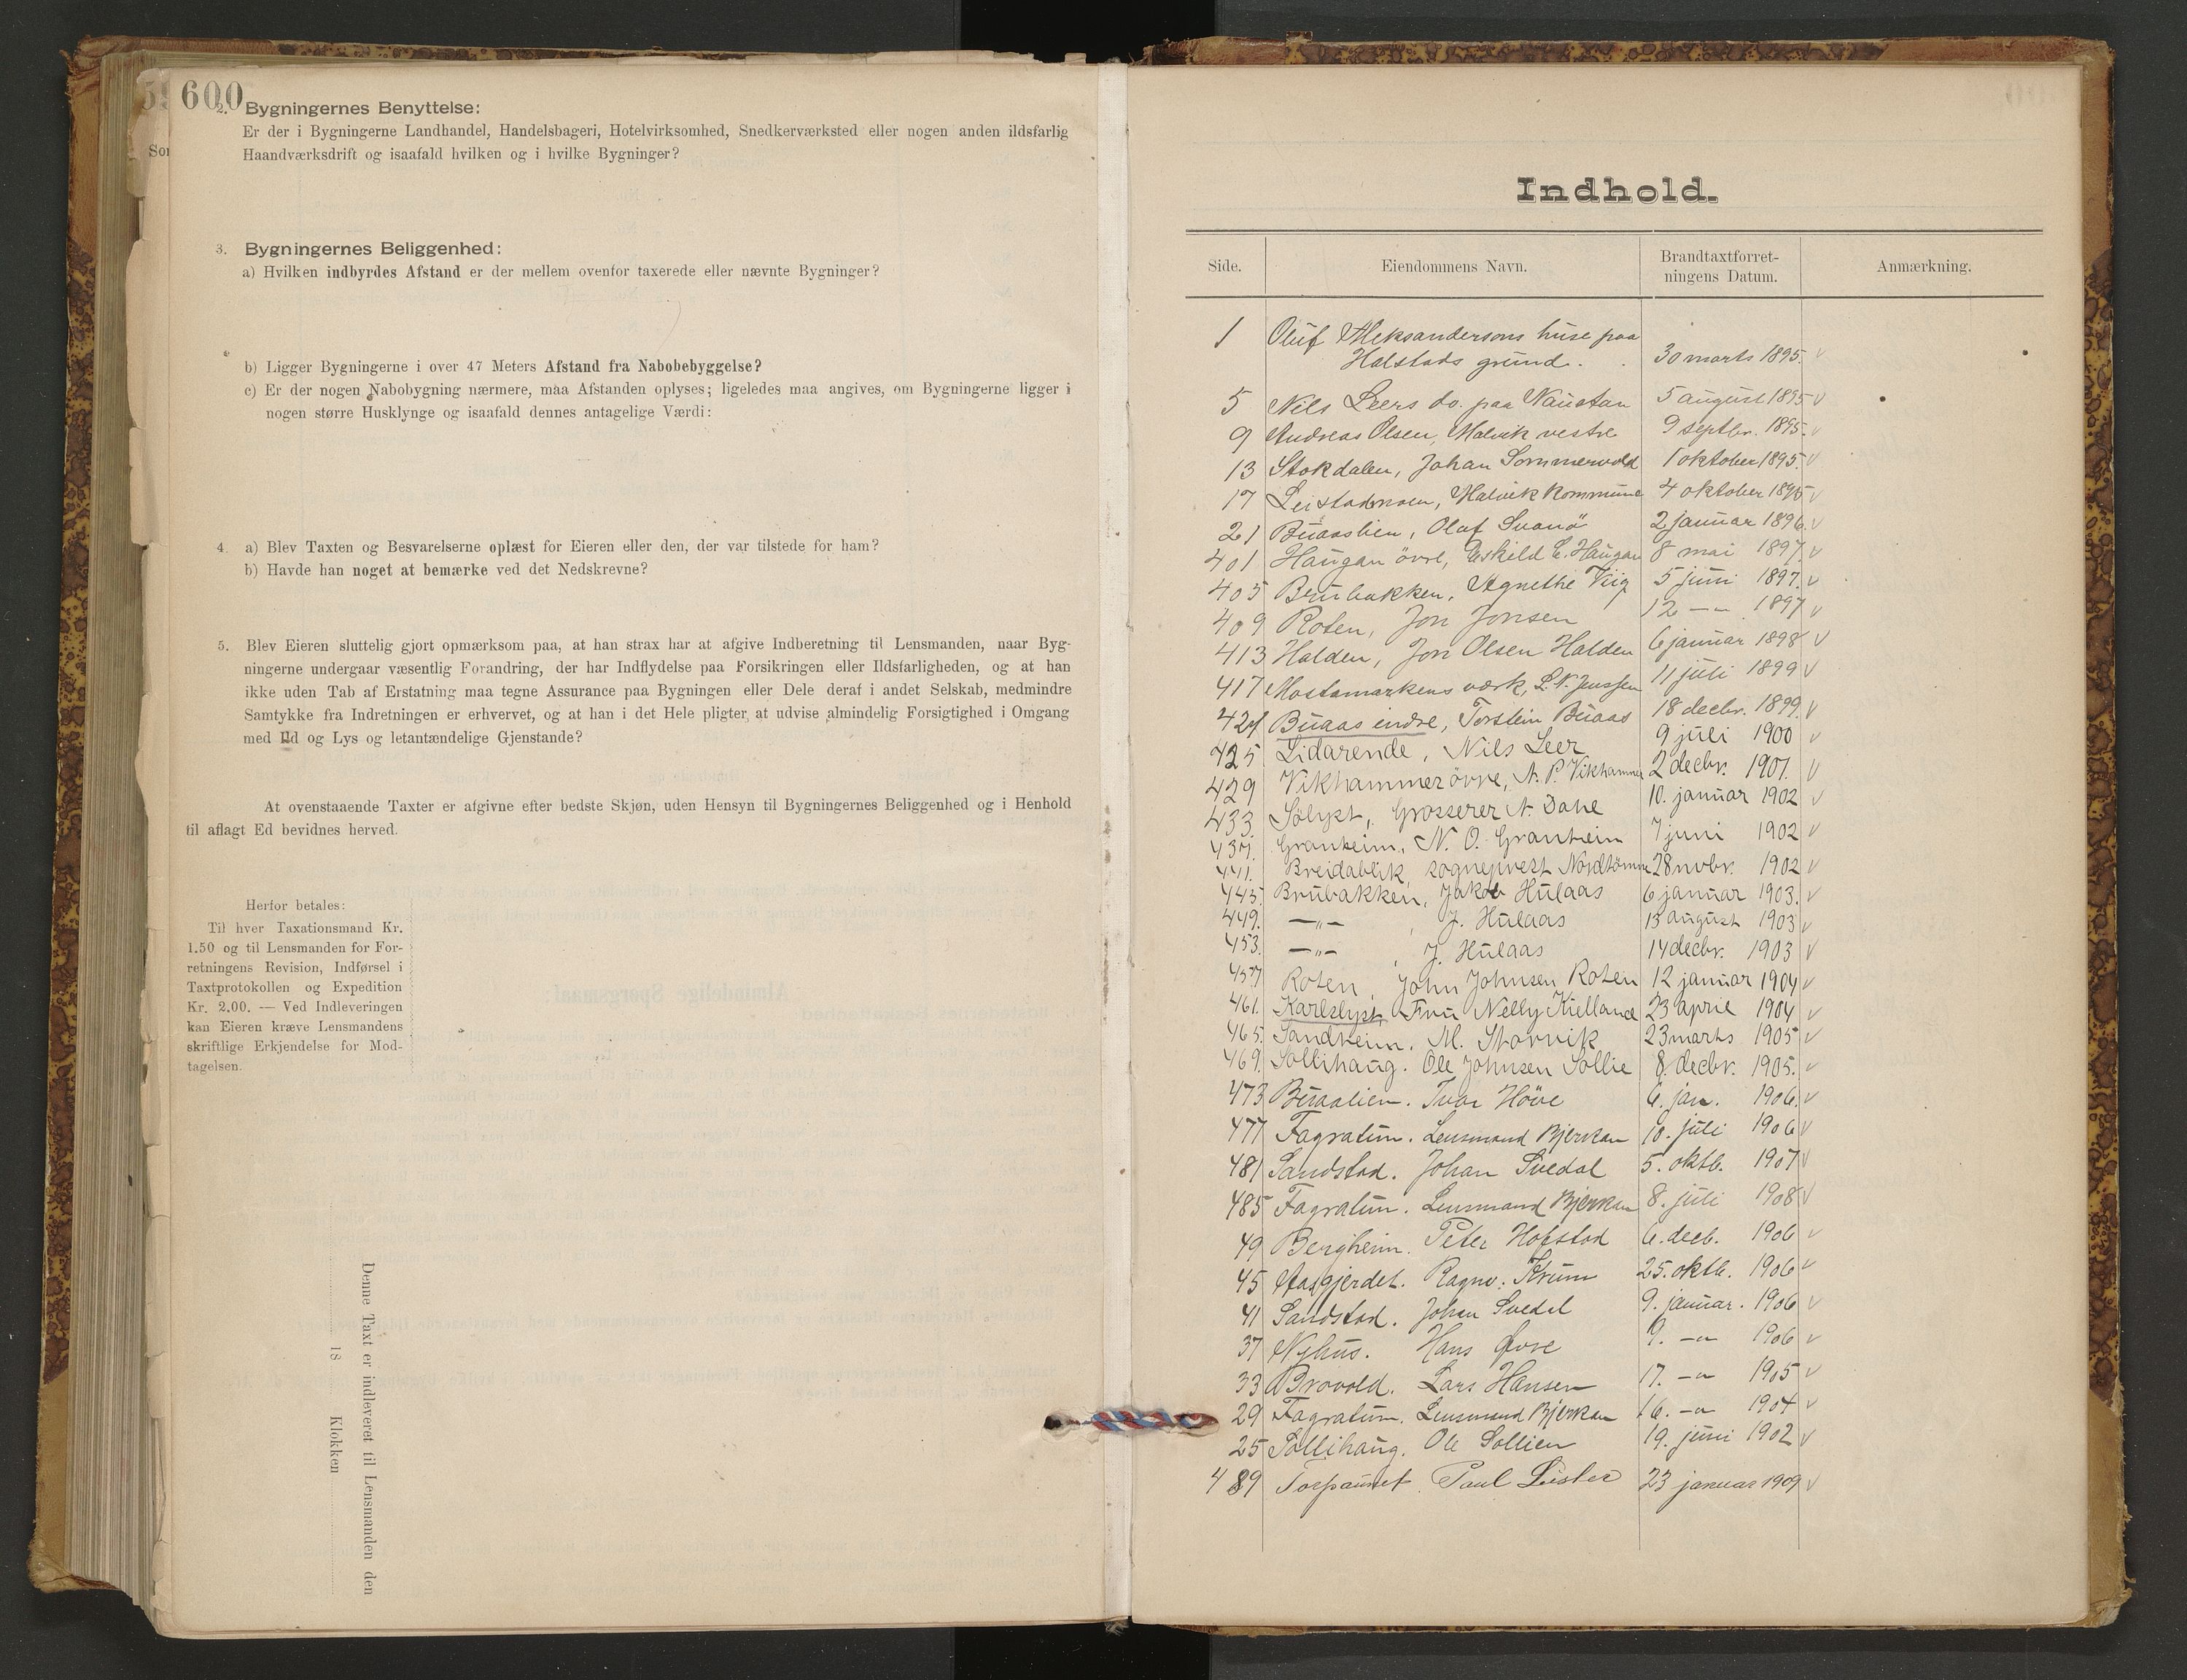 600
2. Bygningernes Benyttelse:
Er der i Bygningerne Landhandel, Handelsbageri, Hotelvirksomhed, Snedkerværksted eller nogen anden ildsfarlig
Haandværksdrift og isaafald hvilken og i hvilke Bygninger?
3. Bygningernes Beliggenhed:
a) Hvilken indbyrdes Afstand er der mellem ovenfor taxerede eller nævnte Bygninger?
b) Ligger Bygningerne i over 47 Meters Afstand fra Nabobebyggelse?
c) Er der nogen Nabobygning nærmere, maa Afstanden oplyses; ligeledes maa angives, om Bygningerne ligger i
nogen større Husklynge og isaafald dennes antagelige Værdi:
4. a) Blev Taxten og Besvarelserne oplæst for Eieren eller den, der var tilstede for ham?
b) Havde han noget at bemærke ved det Nedskrevne?
5. Blev Eieren sluttelig gjort opmærksom paa, at han strax har at afgive Indberetning til Lensmanden, naar Byg-
ningerne undergaar væsentlig Forandring, der har Indflydelse paa Forsikringen eller Ildsfarligheden, og at han
ikke uden Tab af Erstatning maa tegne Assurance paa Bygningen eller Dele deraf i andet Selskab, medmindre
Samtykke fra Indretningen er erhvervet, og at han i det Hele pligter at udvise almindelig Forsigtighed i Omgang
med Ild og Lys og letantændelige Gjenstande?
At ovenstaaende Taxter er afgivne efter bedste Skjøn, uden Hensyn til Bygningernes Beliggenhed og i Henhold
til aflagt Ed bevidnes herved.
Herfor betales:
Til hver Taxationsmand Kr.
1.50 og til Lensmanden for For-
retningens Revision, Indførsel i
Taxtprotokollen og Expedition
Kr. 2.00. — Ved Indleveringen
kan Eieren kræve Lensmandens
skriftlige Erkjendelse for Mod-
tagelsen.
Denne Taxt er indleveret til Lensmanden den
18 Klokken
Indhold.
Side. Eiendommens Navn. Brandtaxtforret-
ningens Datum. Anmærkning.
1 Oluf Aleksandersons huse paa
Halstads grund. 30 marts 1895. v
5 Nils Leers do. paa Naustan 5 august 1895 v
9 Andreas Olsen, Malvik vestre 9 septbr. 1895. v
13 Stokdalen, Johan Sommervold 1 oktober 1895. v
17 Leistadmoen, Malvik kommune 4 oktober 1895 v
21 Buaaslien, Olaf Svanö 2 januar 1896. v
401 Haugan övre, Eskild E. Haugan 8 mai 1897. v
405 Brubakken, Agnethe Viig 5 juni 1897. v
409 Roten, Jon Jonsen 12 —"— 1897 v
413 Halden, Jon Olsen Halden 6 januar 1898 v
417 Mostamarkens værk, L. N. Jenssen 11 juli 1899 v
421 Buaas indre, Torstein Buaas 18 decbr. 1899. v
425 Lidarende, Nils Leer 9 juli 1900 v
429 Vikhammer övre, N. P. Vikhammer 2 decbr. 1901. v
433. Sölyst, Grosserer N. Dahl 10. januar 1902 v
437. Granheim, N. O. Granheim 7 juni 1902 v
441. Breidablik, sogneprest Nordtömme 28 novbr. 1902 v
445. Brubakken, Jakob Hulaas 6 januar 1903. v
449. —"— , J. Hulaas 13 august 1903 v
453. —"— , J. Hulaas 14 decbr. 1903 v
457 Roten, John Johnsen Roten 12 januar 1904 v
461. Karlslyst, Fru Nelly Kielland 23 april 1904 v
465. Sandheim, M. Storvik 23 marts 1905 v
469. Sollihaug. Ole Johnsen Sollie 8. decbr. 1905. v
473 Buaaslien. Ivar Höve 6. jan. 1906. v
477 Fagratun. Lensmand Bjerkan 10. juli 1906 v
481 Sandstad. Johan Svedal 5. oktb. 1907 v
485 Fagratun. Lensmand Bjerkan 8. juli 1908 v
49 Bergheim. Peter Hofstad 6. decb. 1906 v
45 Aasgjerdet. Ragnv. Krum 25. oktb. 1906 v
41 Sandstad. Johan Svedal 9. januar. 1906 v
37 Nyhus. Hans Øvre 9. —"— 1906 v
33 Brovold. Lars Hansen 17. —"— 1905 v
29 Fagratun. Lensmand Bjerkan 16. —"— 1904 v
25 Sollihaug. Ole Sollien 19. juni 1902 v
489 Torpaunet. Paul Lister 23 januar 1909 v